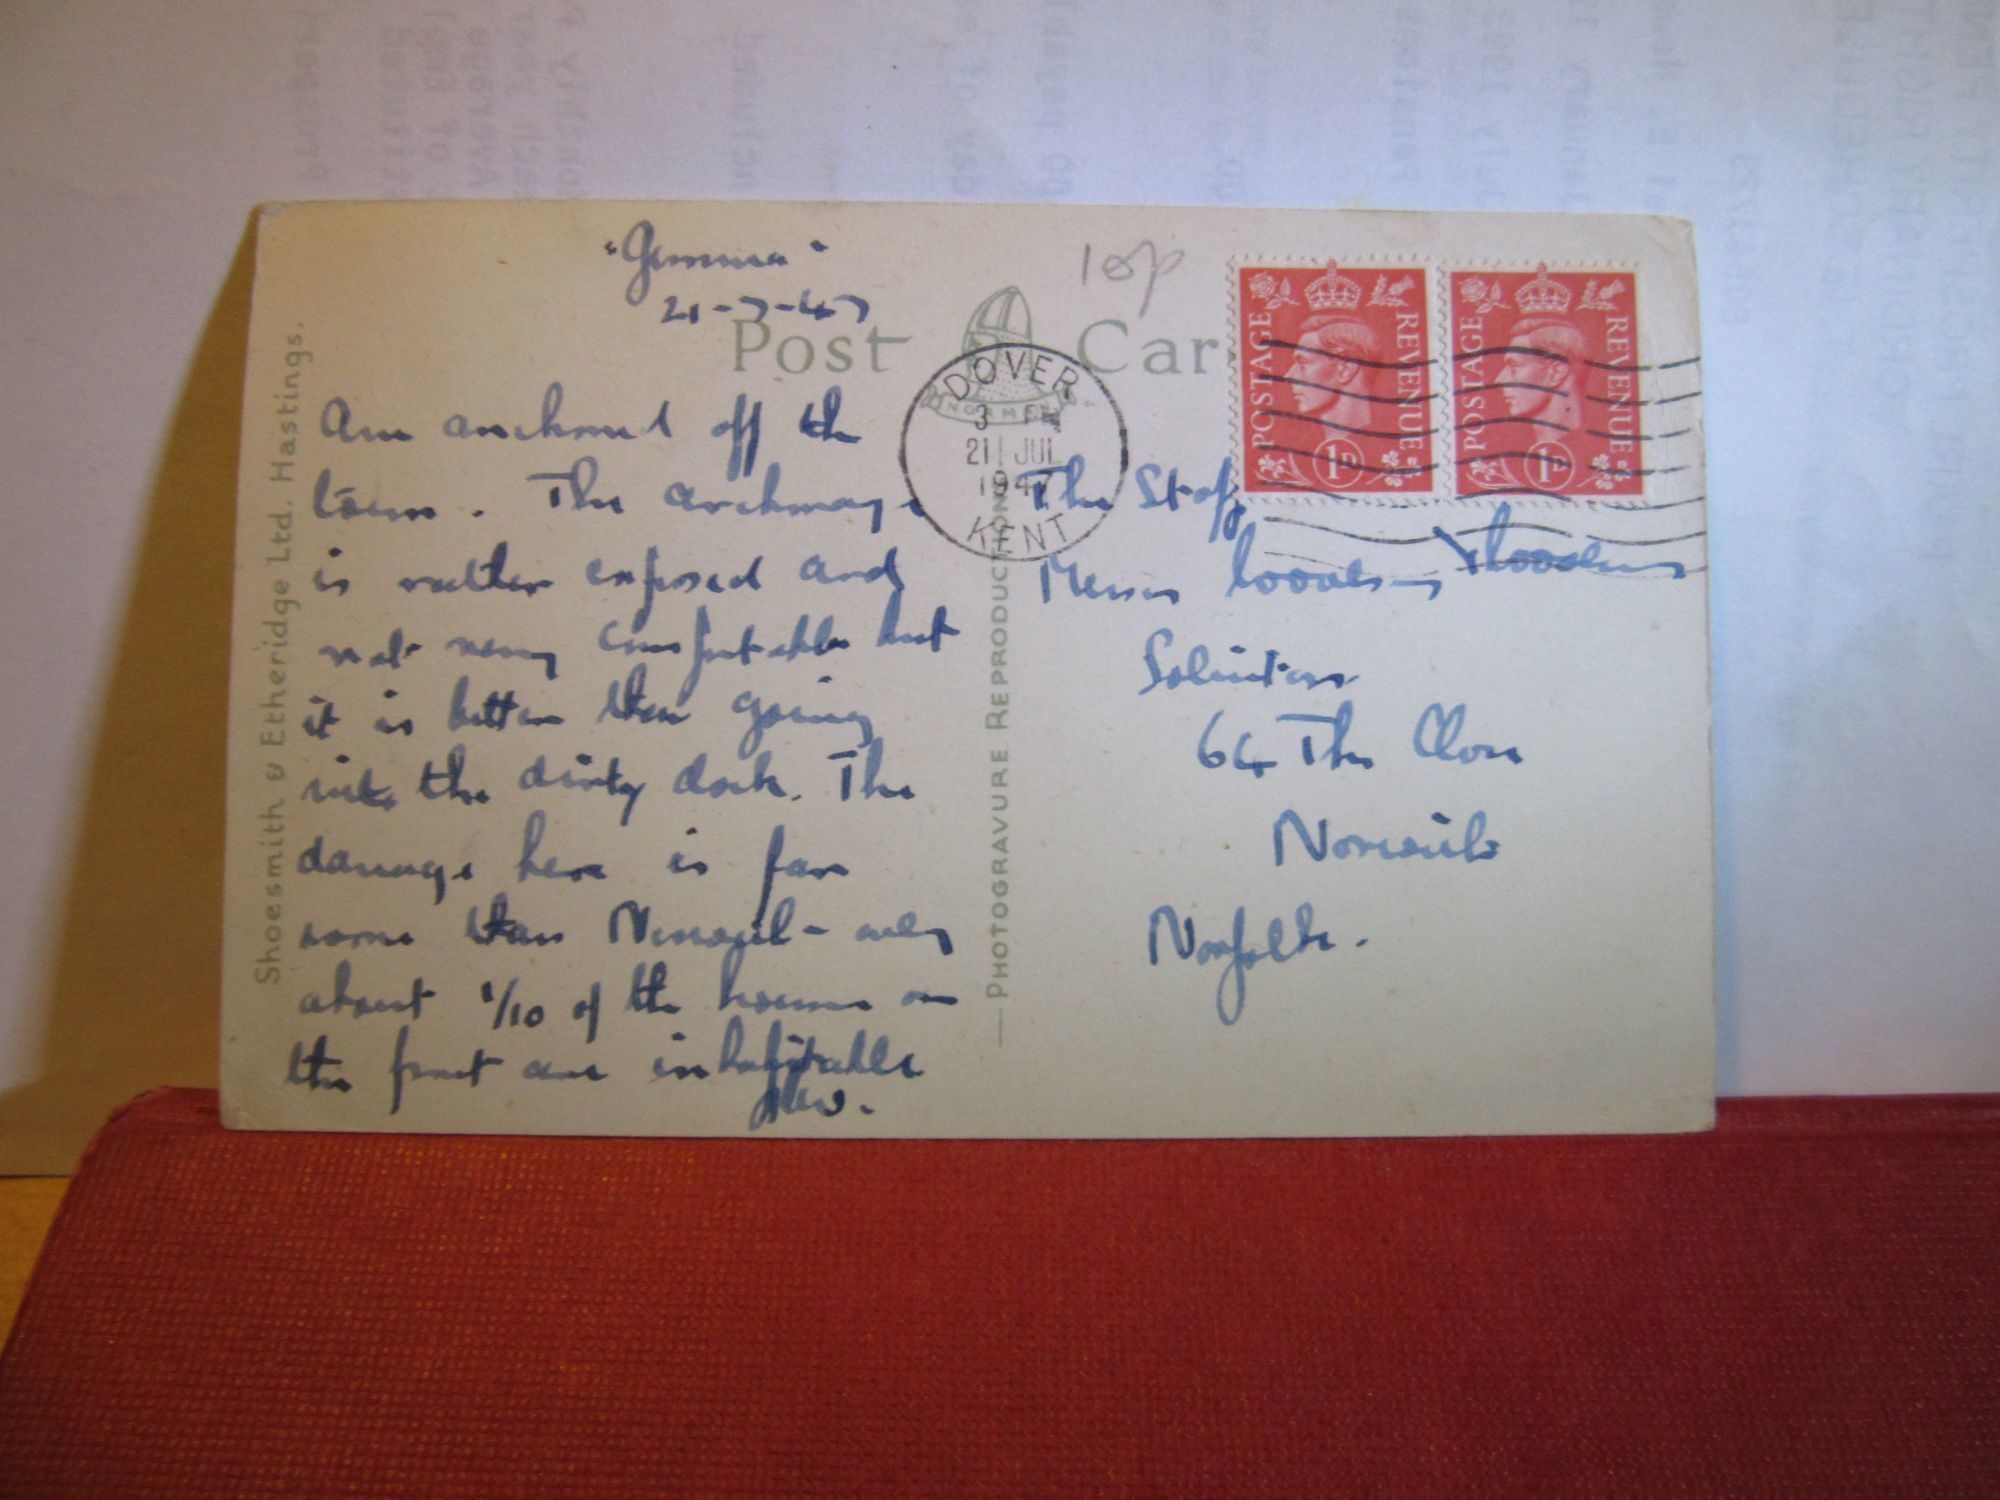 "Gemma"
21-7-47
10p
Post Car
DOVER
3 PM
21 JUL
194
KENT
NORMAN
POSTAGE REVENUE
1D
POSTAGE REVENUE
1D
Shoesmith & Etheridge Ltd. Hastings.
PHOTOGRAVURE REPRODUCTION
Am anchored off the
town. The anchorage
is rather exposed and
not very comfortable but
it is better than going
into the dirty dock. The
damage here is far
worse than Norwich - only
about 1/10 of the houses on
the front are inhabitable
now.
The Staff
Messrs
Solicitors
64 The Close
Norwich
Norfolk.